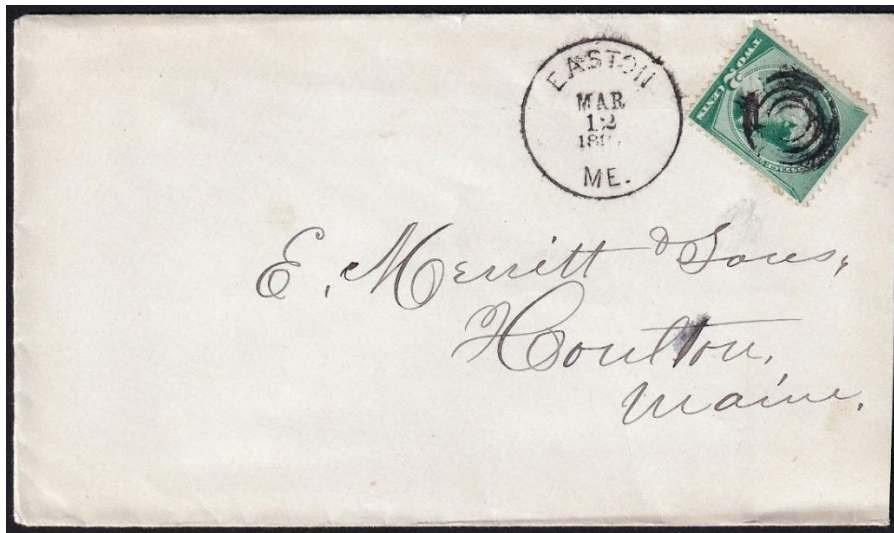 EASTON
MAR
12
ME.
TWO 2 CENTS
E. Merritt & Sons,
Houlton,
Maine.